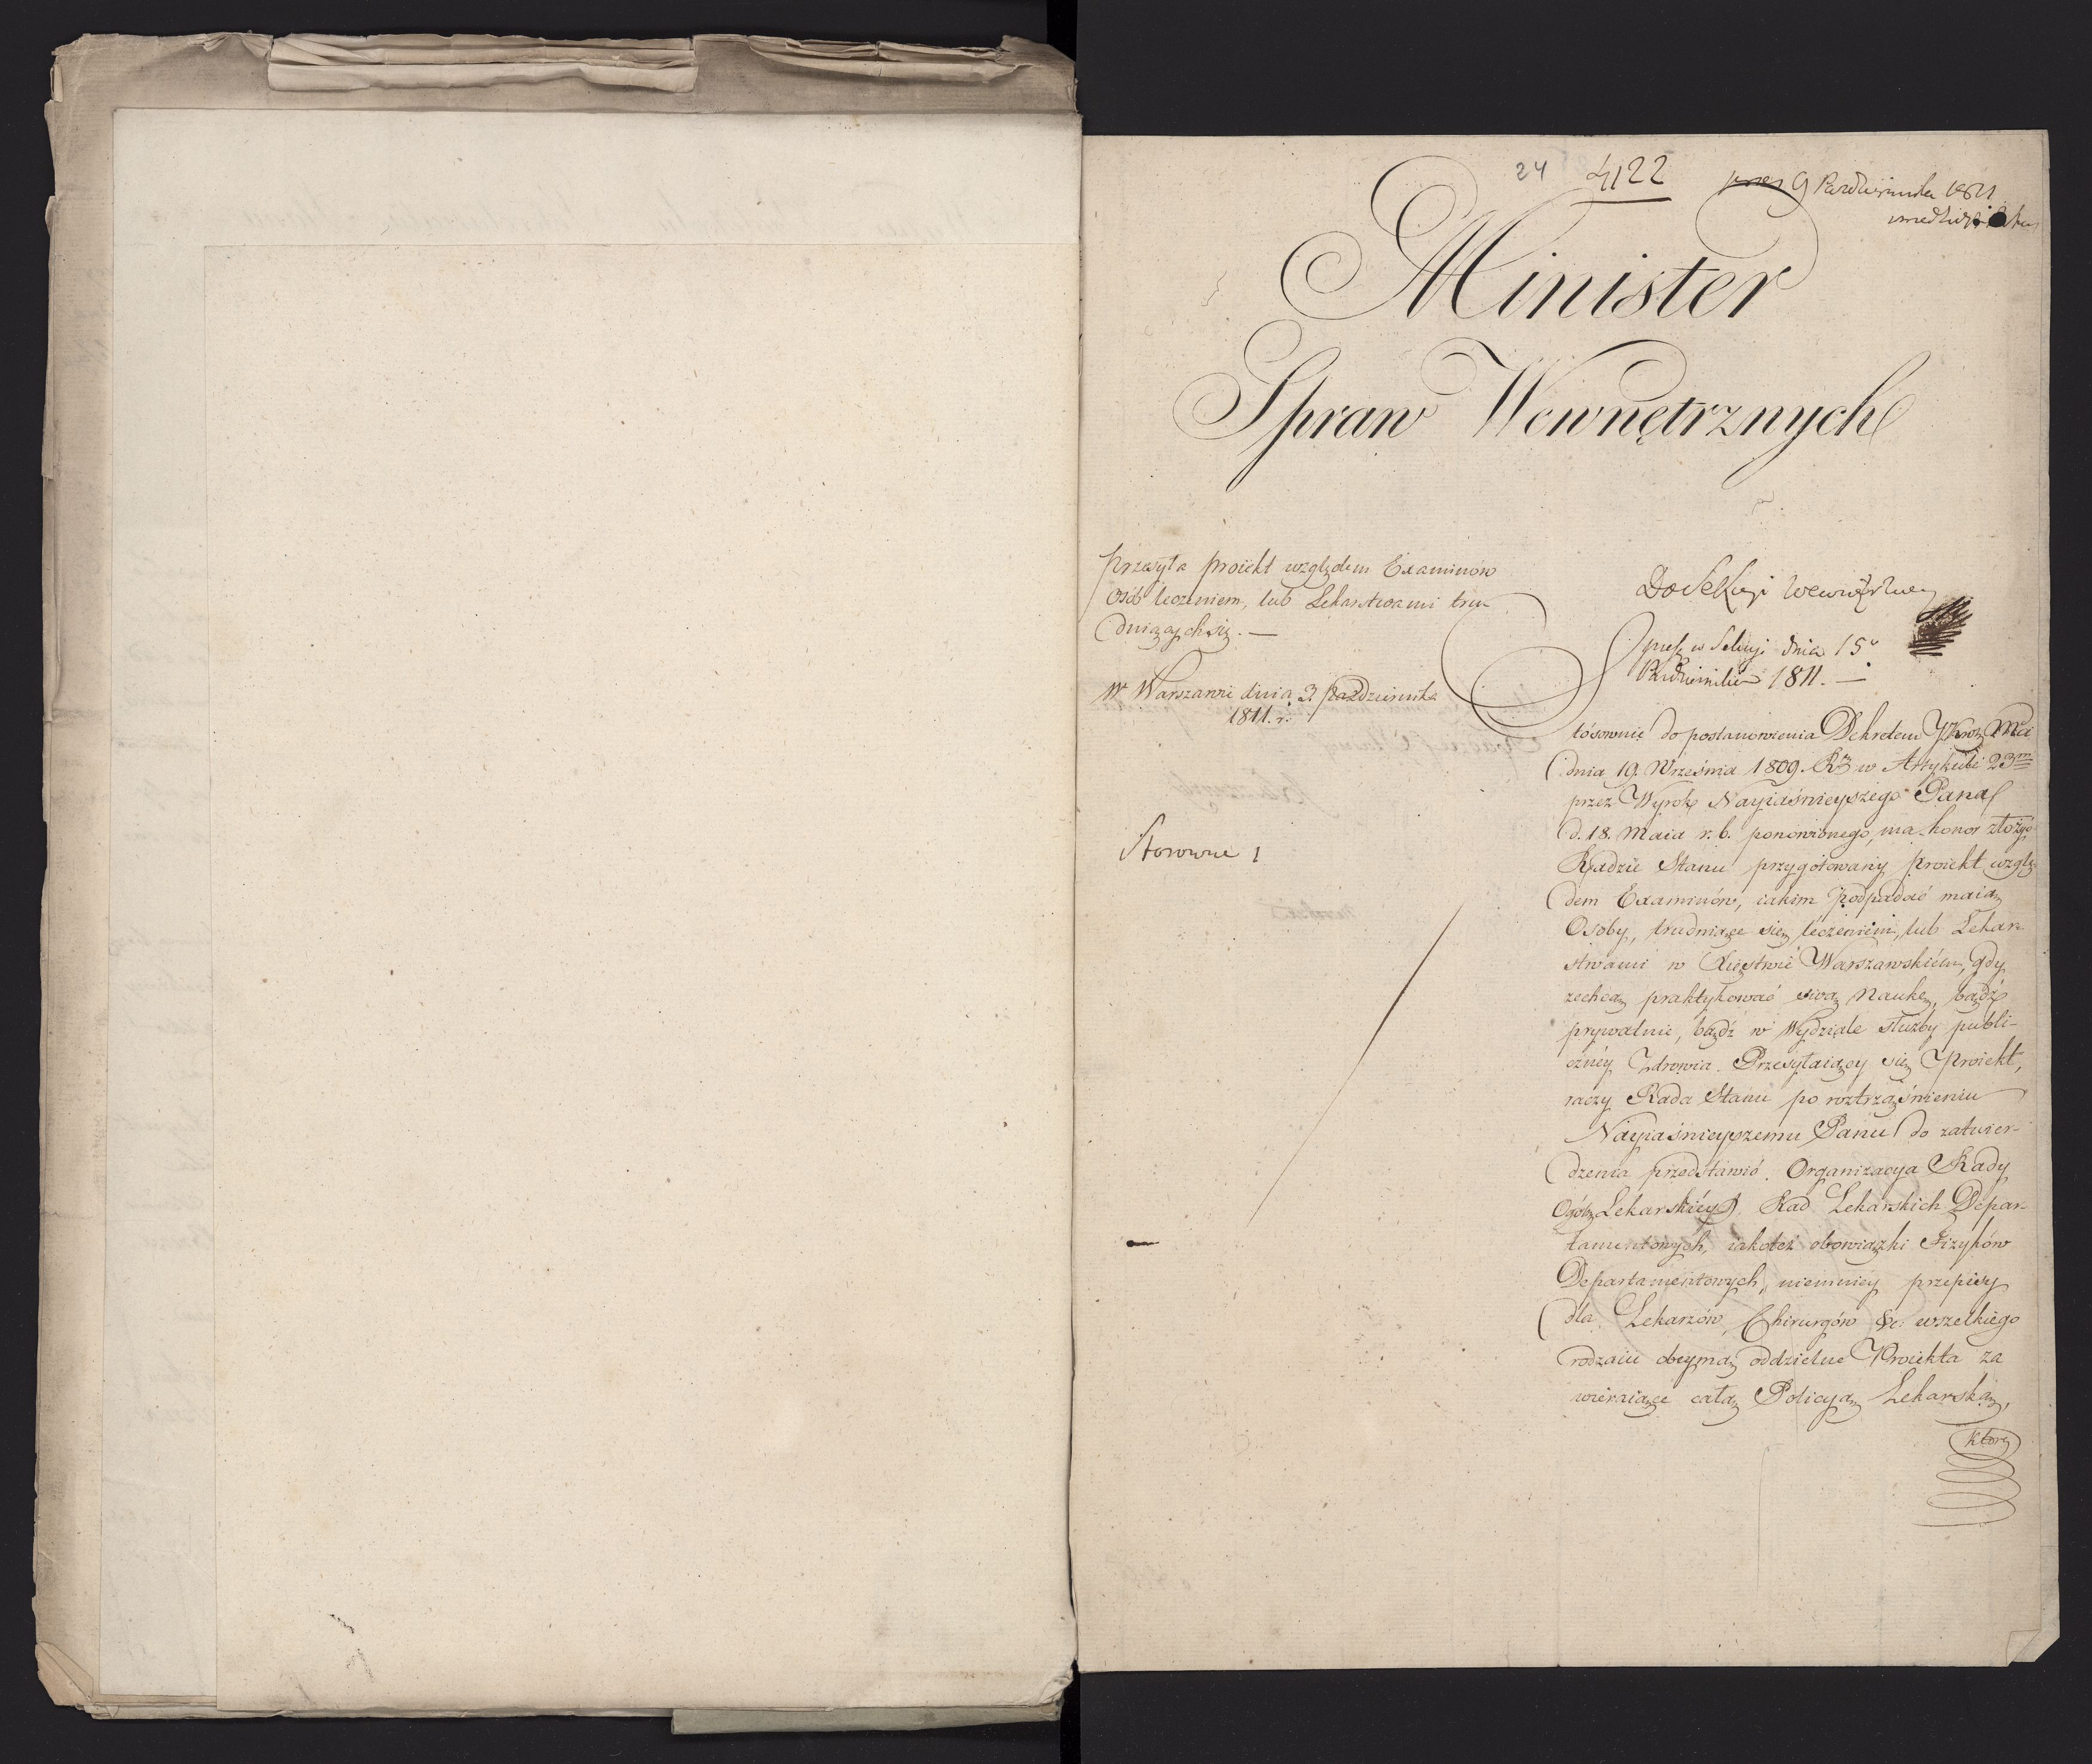 24 4122
pres 9 Października 1811
Minister
Spraw Wewnętrznych
Przesyła proiekt względem Examinów
Osób leczeniem, lub Lekarstwami tru
dniących się. —
W Warszawie dnia 3 Października
1811. r.
Do Sekcyi Wewnętrzney
pres. w Sekcyi dnia 15º
Października 1811. —
Stosownie do postanowienia Dekretem JKról Mci
dnia 19. Września 1809. Rº w Artykule 23m
przez Wyrok Nayiaśnieyszego Pana
d. 18. Maia r. b. ponowionego, ma honor złożyć
Radzie Stanu przygotowany Proiekt wzglę
dem Examinów, iakim podpadać maią
Osoby, trudniące się leczeniem, lub Lekar
stwami w Xięstwie Warszawskiém, gdy
zechcą praktykować swą Naukę, bądź
prywatnie, bądź w Wydziale służby publi-
cznéy Zdrowia. Przesyłaiący się Proiekt,
raczy Rada Stanu po roztrząśnieniu
Nayiaśnieyszemu Panu do zatwier-
dzenia przedstawić. Organizacya Rady
Ogól. Lekarskiéy, Rad Lekarskich Depar
tamentowych, iakoteż obowiązki Fizyków
Departamentowych, niemniey przepisy
dla Lekarzów, Chirurgów &c. wszelkiego
rodzaiu obeymą oddzielne Proiekta za
wieraiące całą Policyą Lekarską,
którą